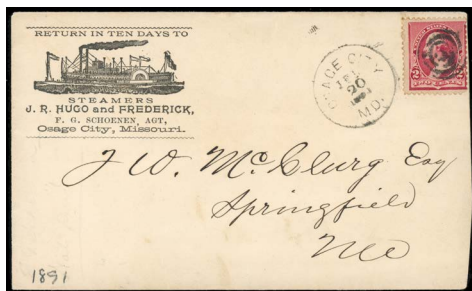 RETURN IN TEN DAYS TO
STEAMERS
J. R. HUGO and FREDERICK,
F. G. SCHOENEN, AGT,
Osage City, Missouri.
OSAGE CITY
20
MO.
2 2
J W. McClurg Esq
Springfield
Mo
1891